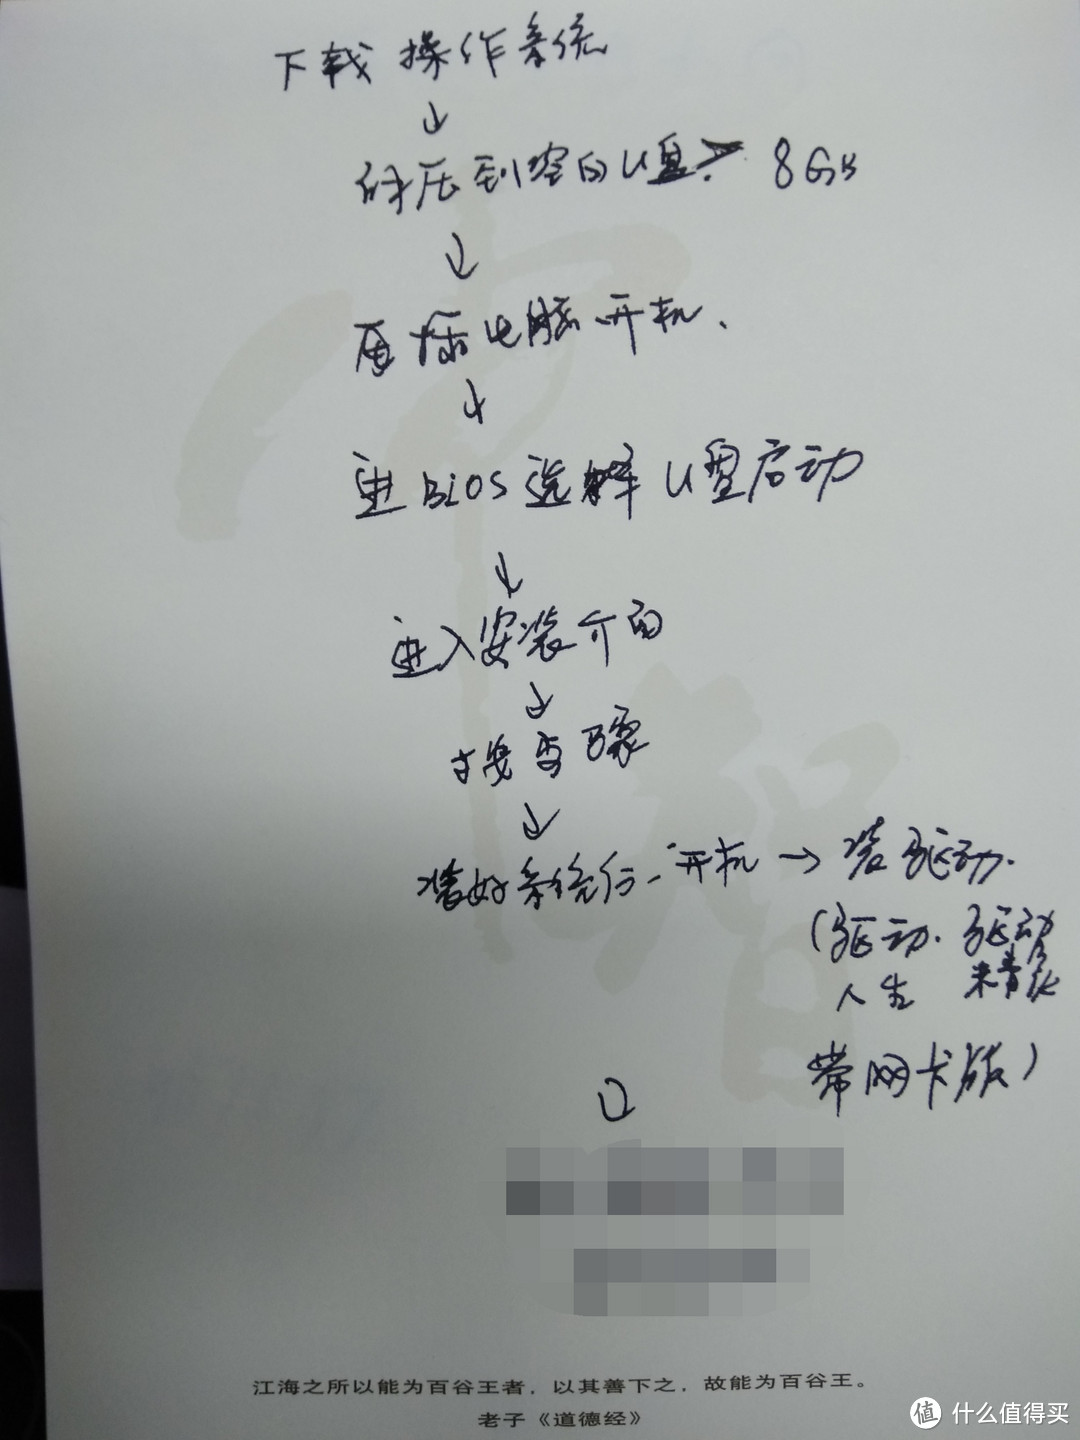 下载 操作系统
↓
解压到空的U盘 > 8GB
↓
电脑开机.
↓
进BiOS选择U盘启动
↓
进入安装介面
↓
按步骤
↓
装好系统后-开机 → 装驱动.
(驱动. 驱动
人生 精灵
带网卡版)
↓
江海之所以能为百谷王者，以其善下之，故能为百谷王。
老子《道德经》
值 什么值得买